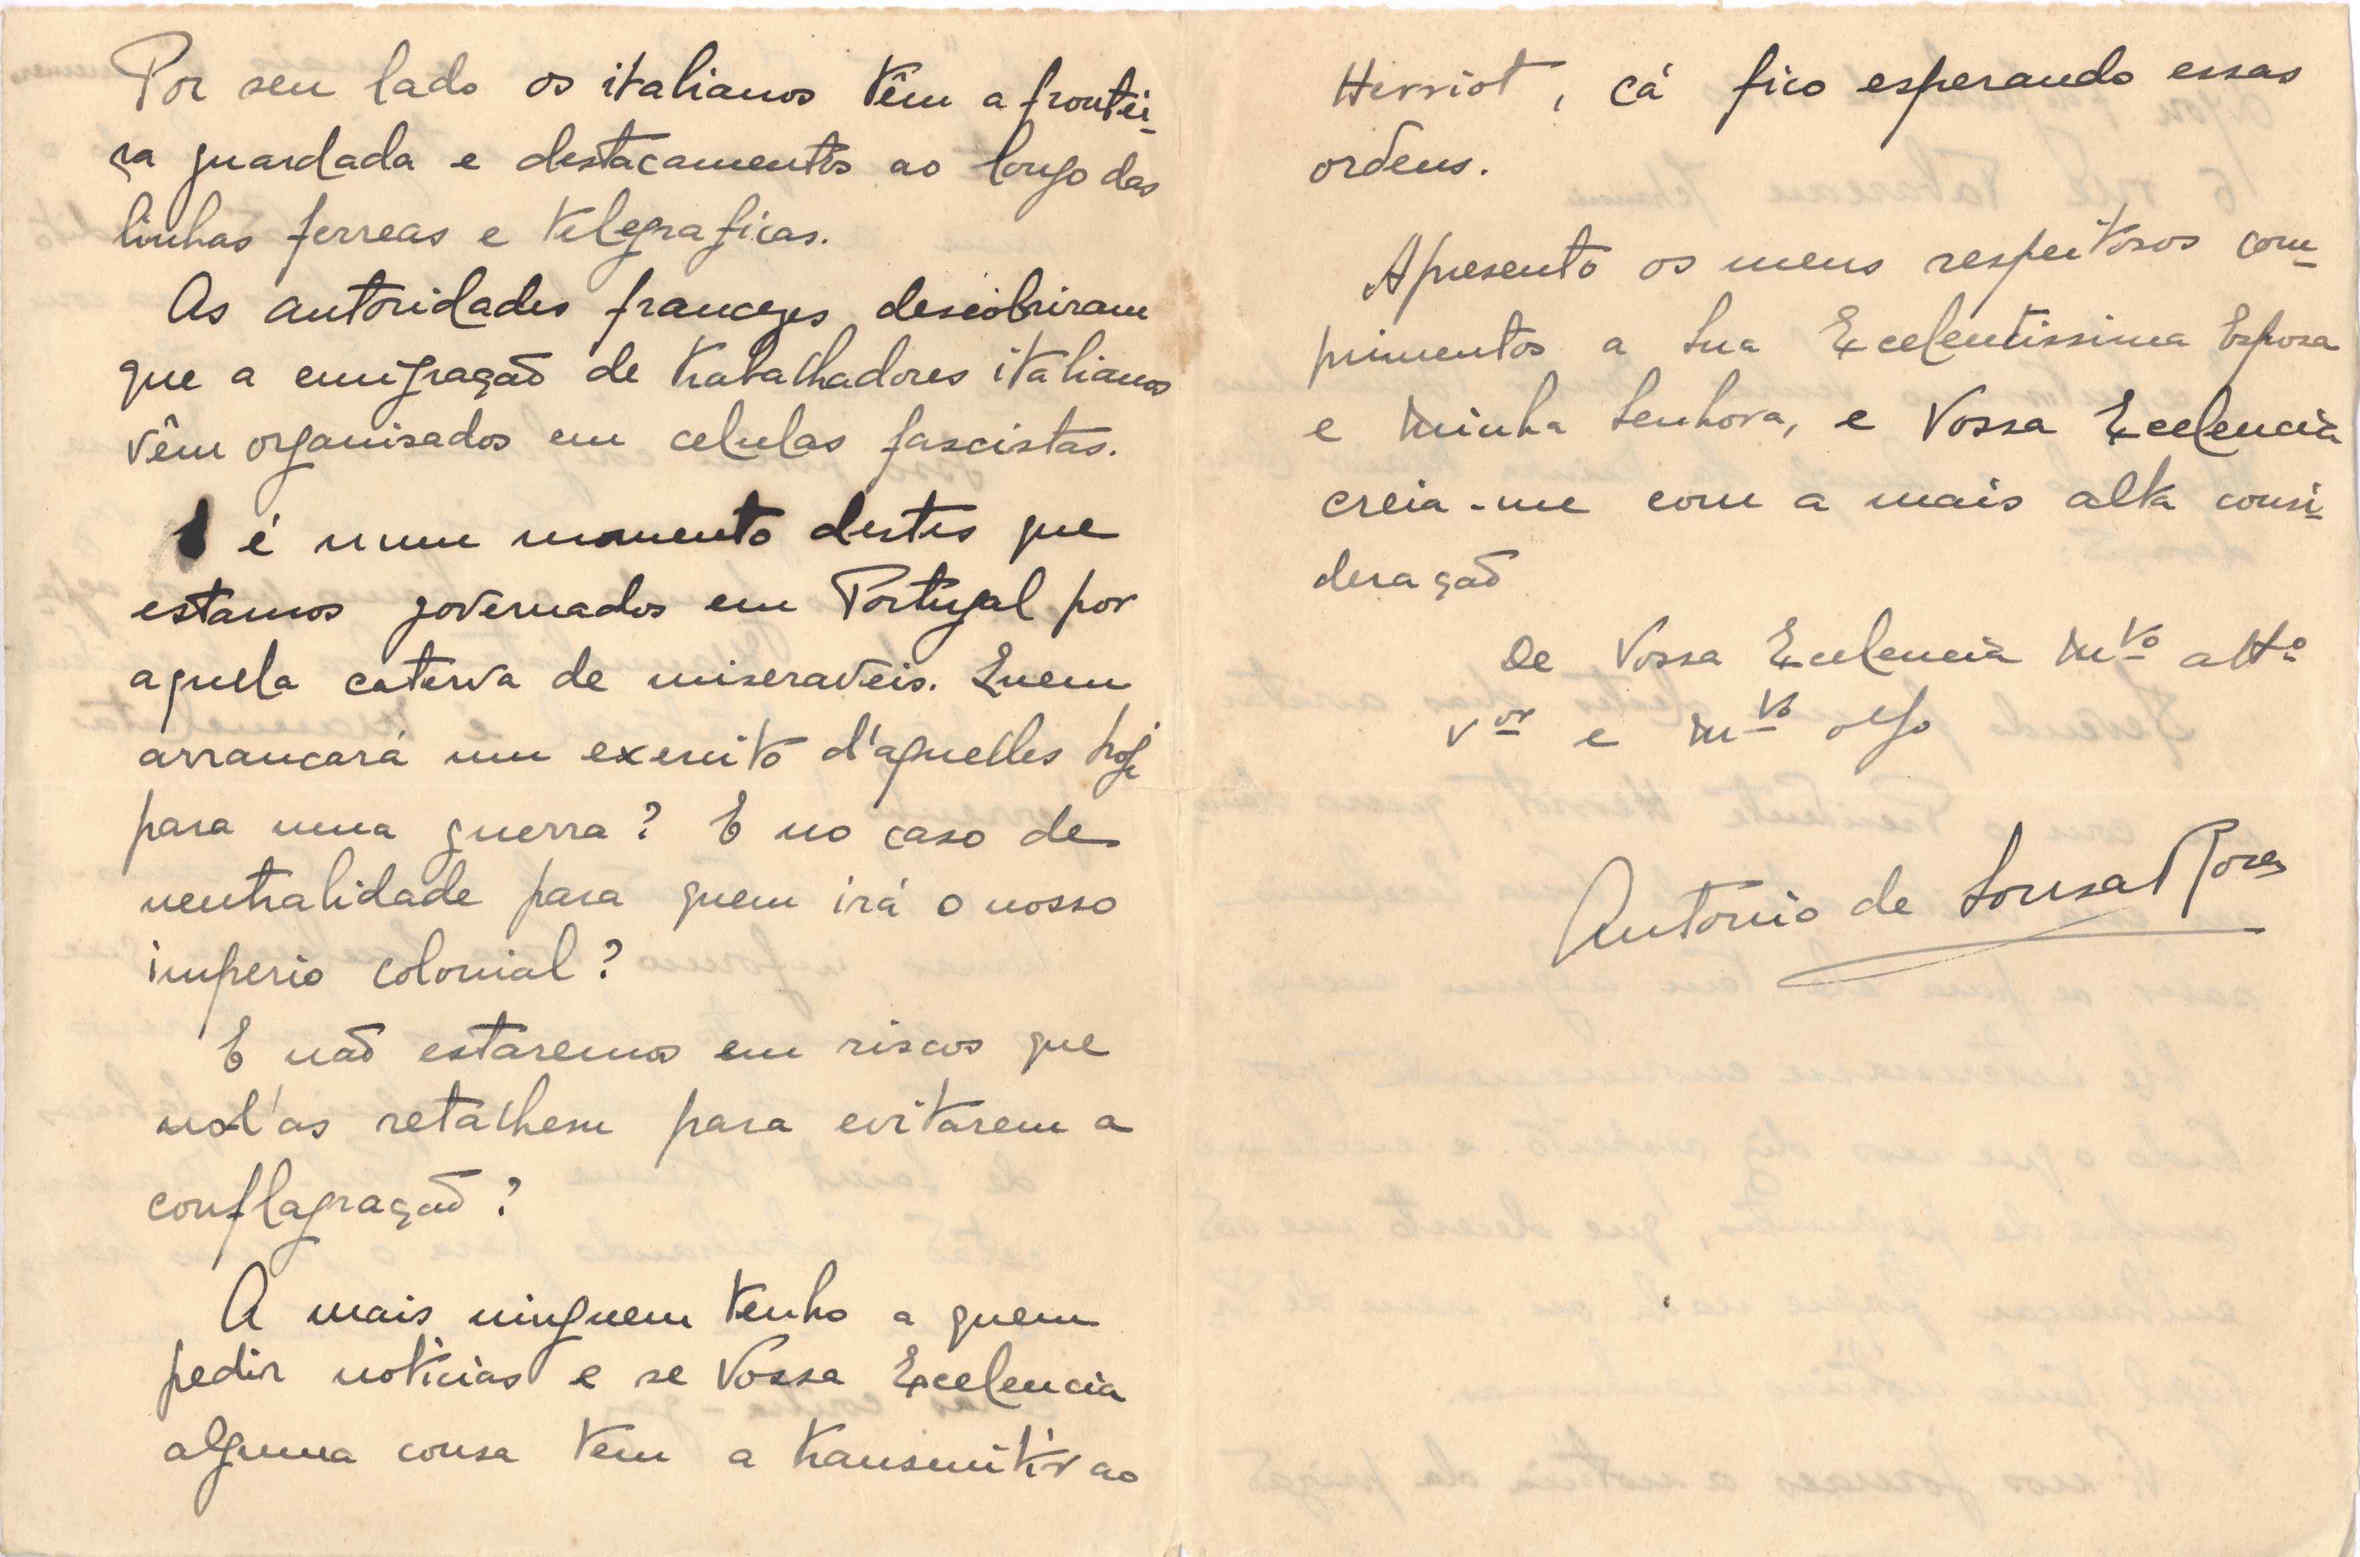 Por seu lado os italianos têm a frontei-
ra guardada e destacamentos ao longo das
linhas ferreas e telegraficas.
As autoridades francezes descobriram
que a emigração de trabalhadores italianos
vêm organisados em celulas fascistas.
E é num momento destes que
estamos governados em Portugal por
aquela caterva de miseraveis. Quem
arrancará um exercito d'aquelles hoje
para uma guerra? E no caso de
neutralidade para quem irá o nosso
imperio colonial?
E não estaremos em riscos que
nol'as retalhem para evitarem a
conflagração?
A mais ninguem tenho a quem
pedir noticias e se Vossa Excelencia
alguma cousa tem a transmitir ao
Herriot, cá fico esperando essas
ordens.
Apresento os meus respeitosos com-
primentos a Sua Excelentissima Esposa
e Minha Senhora, e Vossa Excelencia
creia-me com a mais alta consi-
deração
De Vossa Excelencia Mto attº
vor e mto obgo
Antonio de Sousa Rosa